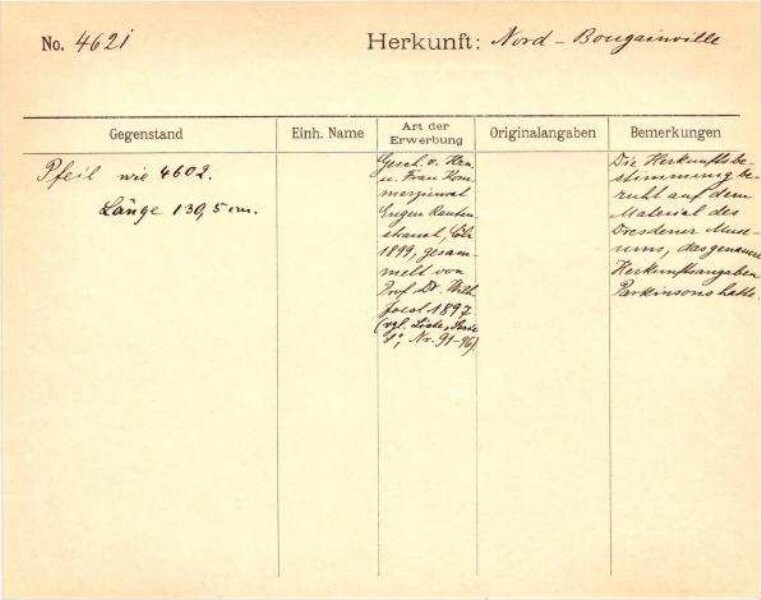 No. 4621
Herkunft: Nord - Bougainville
Gegenstand
Einh. Name
Art der
Erwerbung
Originalangaben
Bemerkungen
Pfeil wie 4602.
Länge 130,5 cm.
Gesch. v. Herrn
u. Frau Kom-
merzienrat
Eugen Rauten-
strauch, Cöln
1899, gesam-
melt von
Prof. Dr. Wilh.
Joest 1897
(vgl. Liste, Serie
Nr. 91-96)
Die Herkunftsbe-
stimmung be-
ruht auf dem
Material des
Dresdener Muse-
ums, das genauere
Herkunftsangaben
Parkinsons hatte.